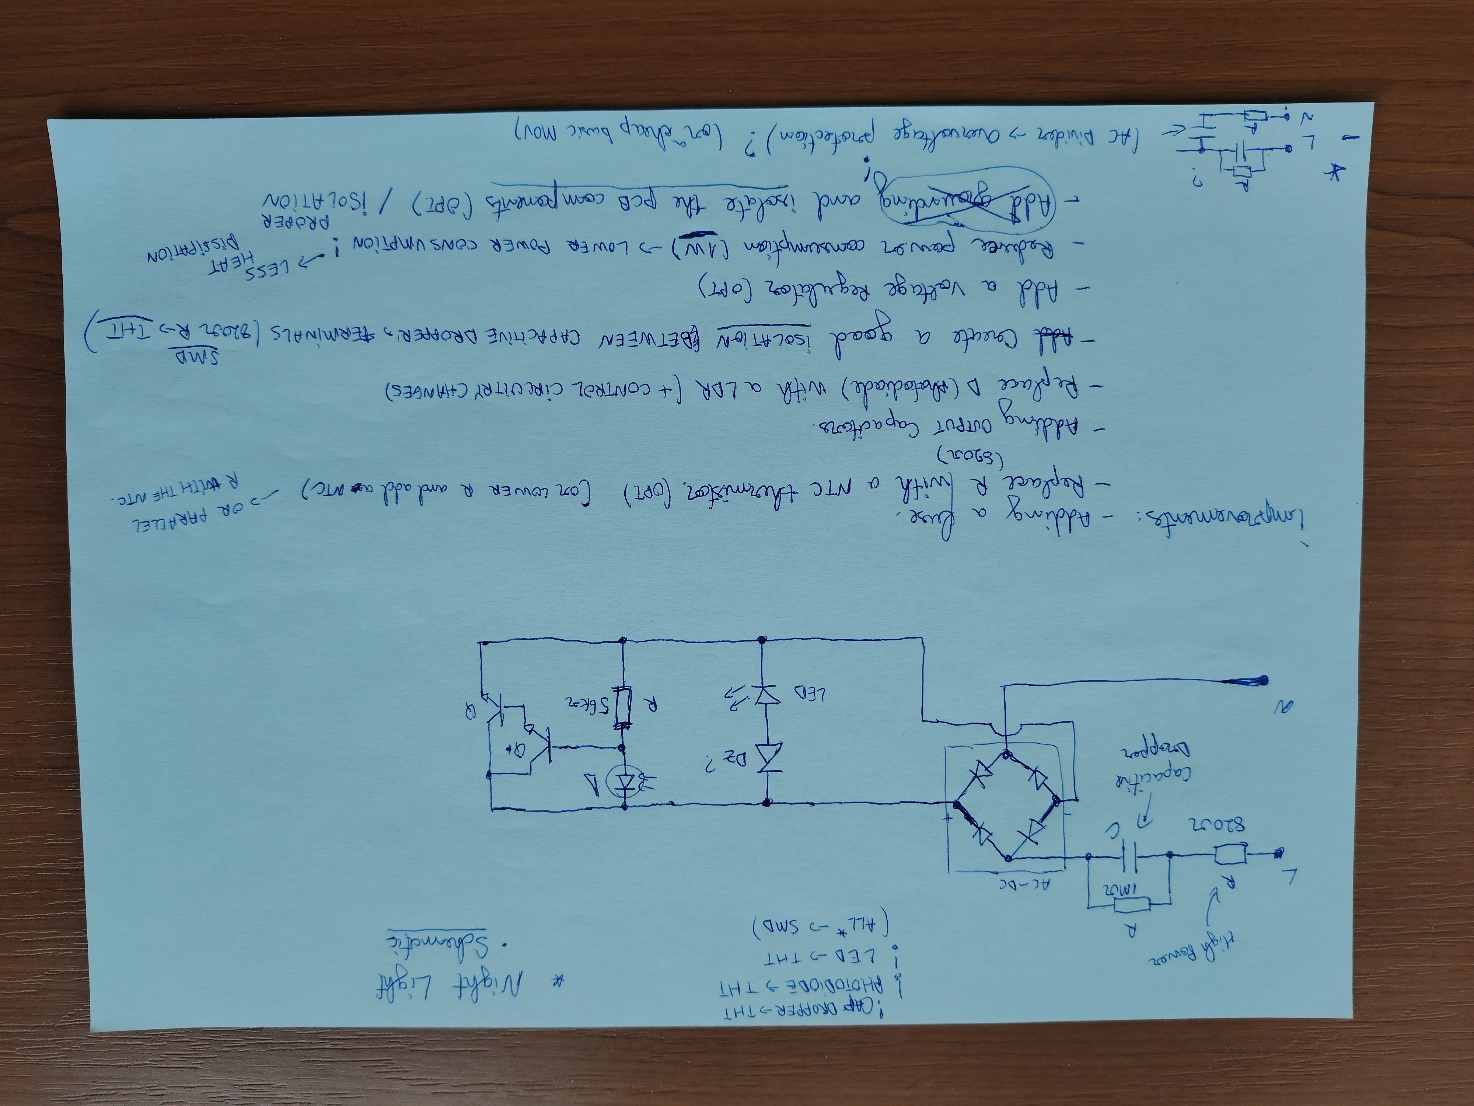 * Night Light
. Schematic
! CAP DROPPER → THT
! PHOTODIODE → THT
! LED → THT
(ALL* → SMD)
High Power
R
820Ω
L
R
1MΩ
C
Capacitive
Dropper
N
AC-DC
+
-
Dz?
LED
D
R
56kΩ
Q
Q
improvements:
- Adding a fuse.
- Replace R with a NTC thermistor. (OPT) (or LOWER R and add a NTC)
(820Ω)
→ OR PARALLEL
R WITH THE NTC.
- Adding OUTPUT Capacitors.
- Replace D (Photodiode) with a LDR (+ CONTROL CIRCUITRY CHANGES)
- Create a good ISOLATION (BETWEEN CAPACITIVE DROPPER, TERMINALS (820Ω R → THT)
SMD
- Add a Voltage Regulator (OPT)
- Reduce power consumption (1W) → LOWER POWER CONSUMPTION !
→ LESS
HEAT
DISSIPATION
- Add grounding and isolate the pcb components (OPT) / PROPER
ISOLATION
(AC Divider → Overvoltage protection) ? (or cheap basic MOV)
*
-
L
N
R
?
R